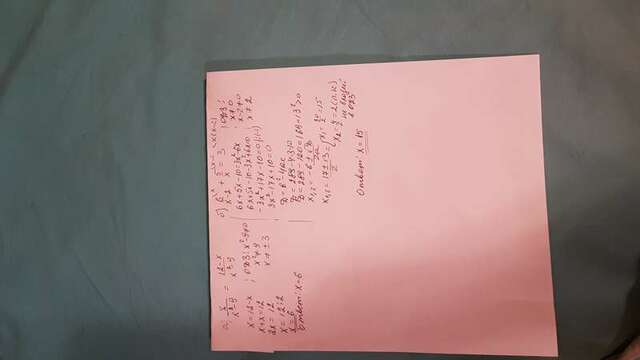 а) x/(x²-9) = (12-x)/(x²-9)
x = 12-x ; ОДЗ: x²-9≠0
x+x=12 x²≠9
2x = 12 x ≠ ±3
x = 12:2
x = 6
Ответ: x=6
б) 6/(x-2) + 5/x = 3 ОДЗ:
x≠0
x-2≠0
x≠2
6x+5x-10=3x²-6x
6x+5x-10-3x²+6x=0
-3x²+17x-10=0 |:(-1)
3x²-17x+10=0
D=b²-4ac
D=289-4·3·10
D=289-120=169=13²>0
x1,2=(-b±√D)/2a
x1,2=(17±13)/2= [x1=30/2=15
x2=4/2=2 (п.к)
не входит
в ОДЗ
Ответ: x=15